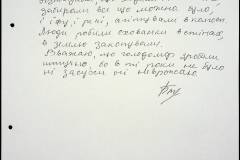 забирали все що можна було,
і їжу, і речі, а ліпували в колгосп.
Люди робили сховонки в стінах,
в землю закопували.
Вважаю, що голодомор зробили
штучно, бо в ті роки не було
ні засухи ні неврожаю.